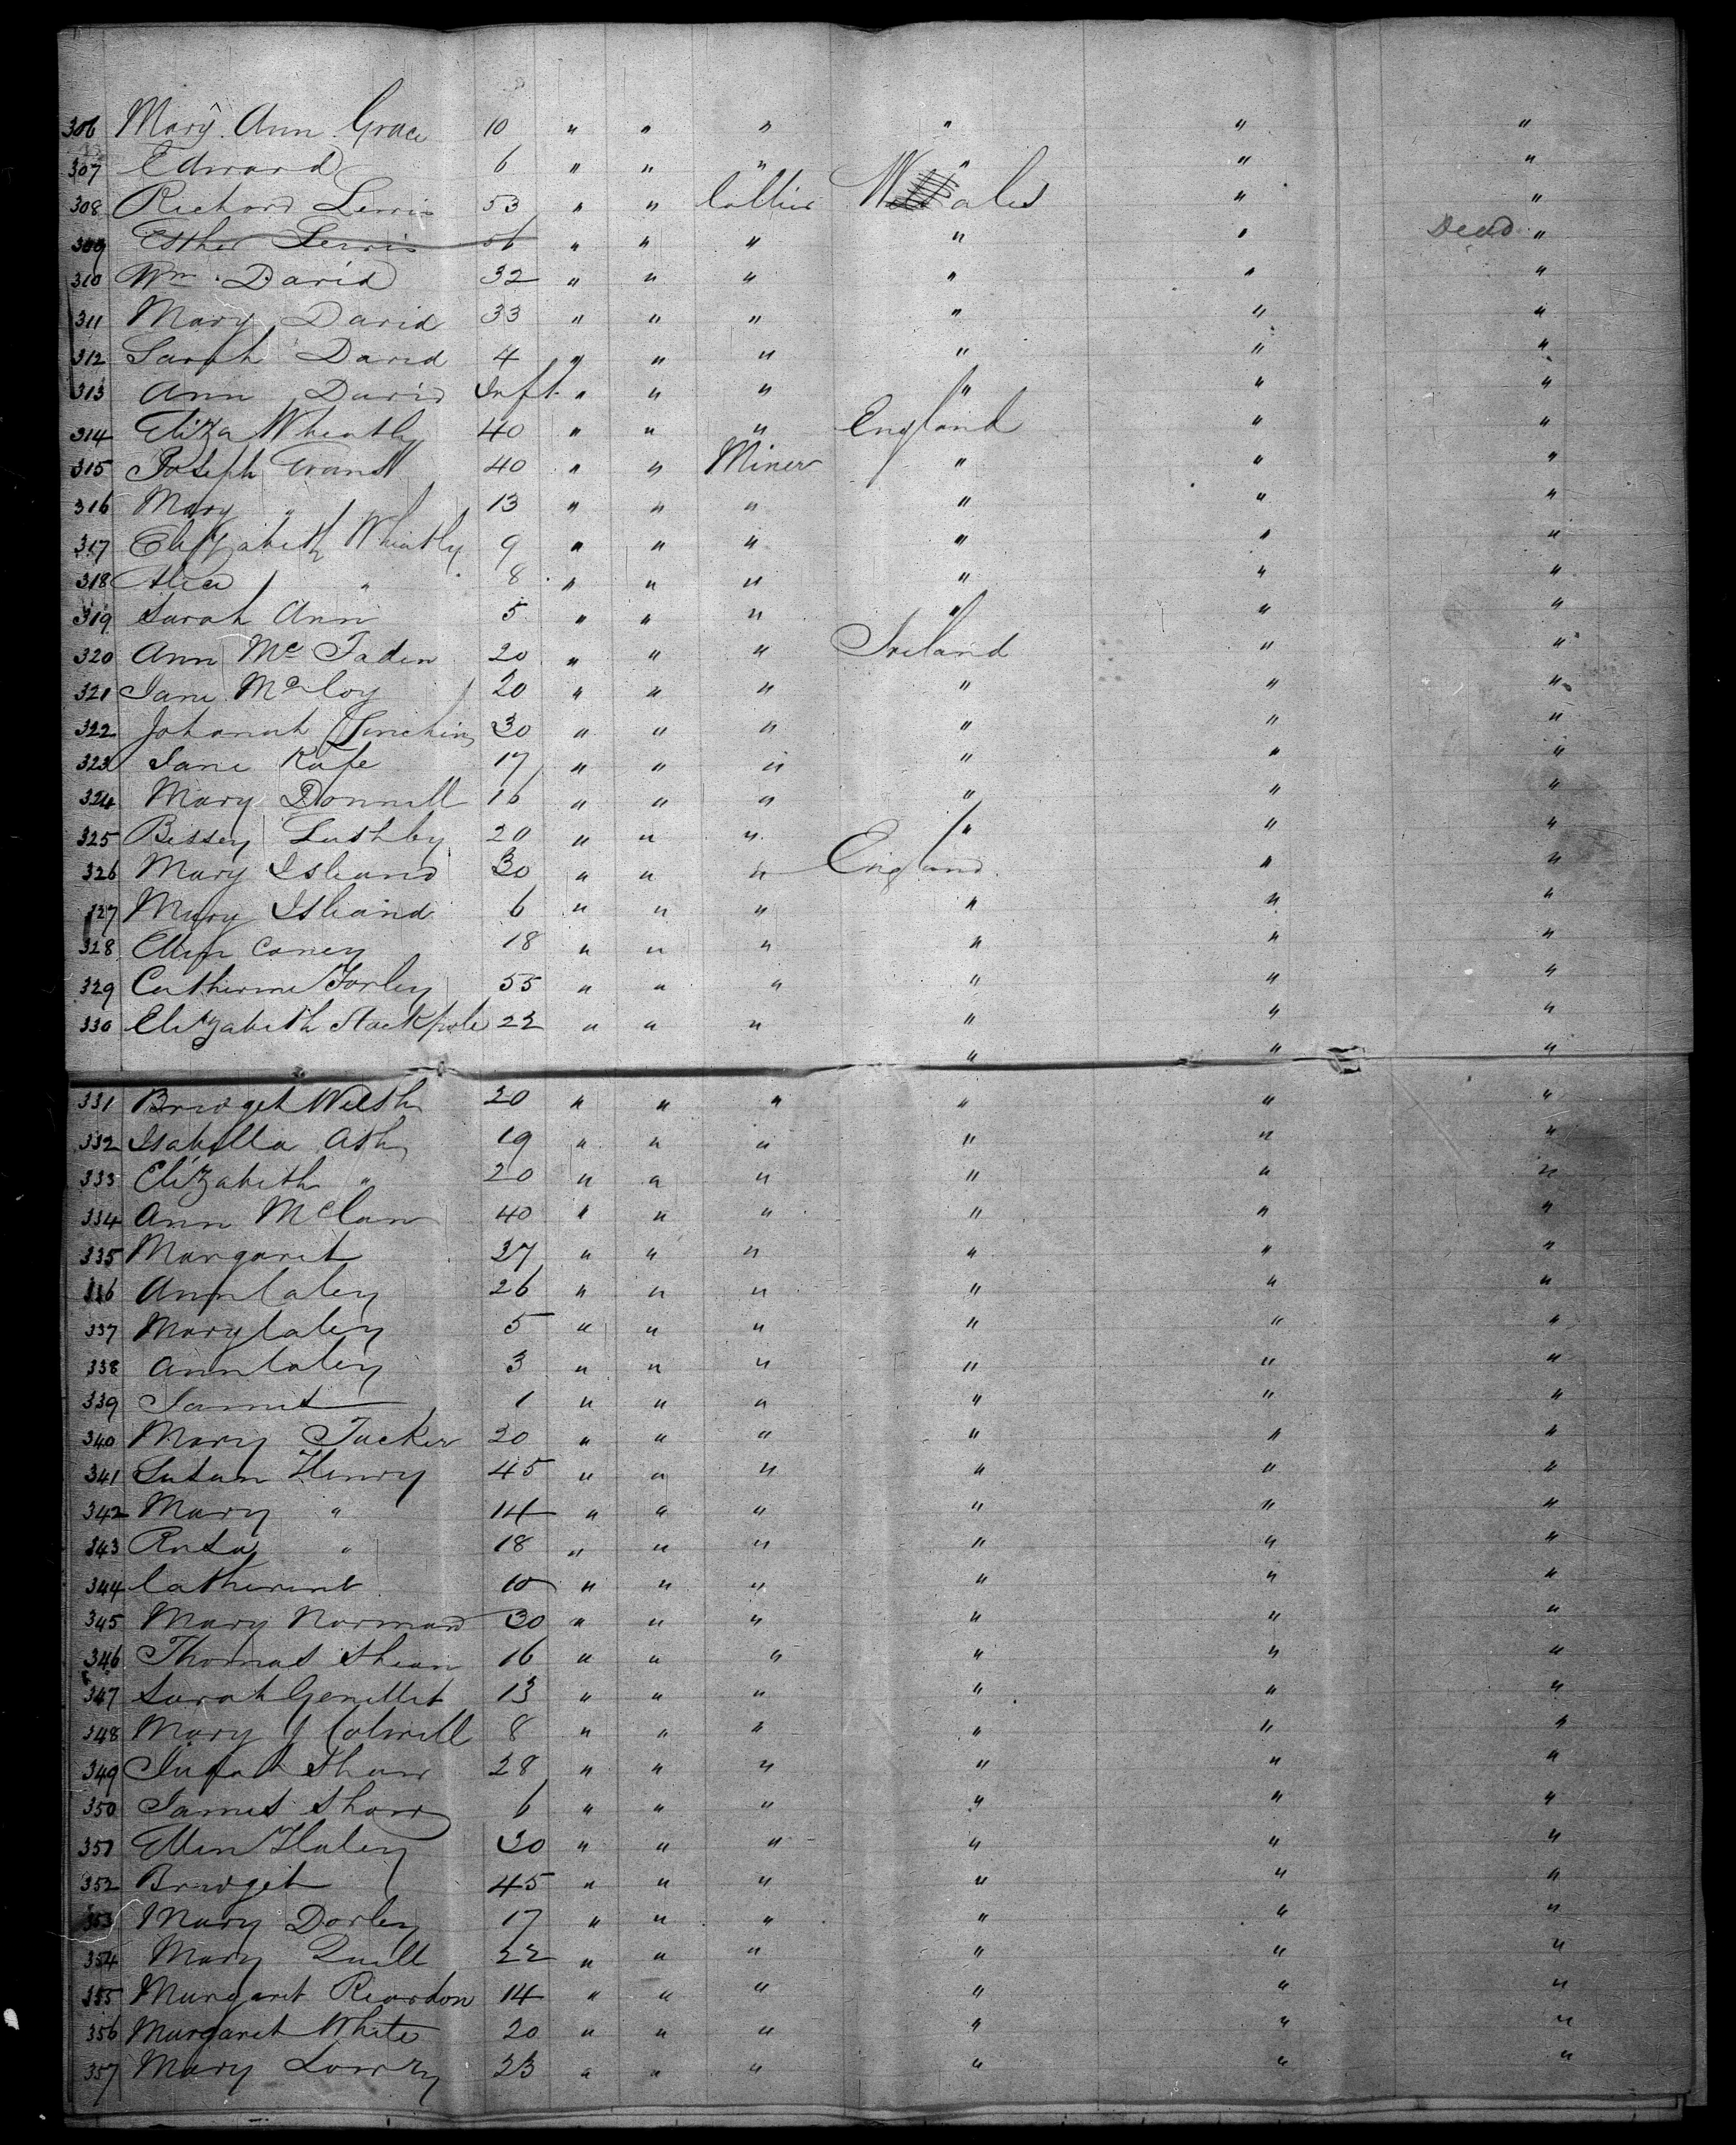 306 Mary Ann Grace 10 " " " " " "
307 Edward 6 " " " " " "
308 Richard Lewis 53 " " Collier Wales " "
309 Esther Lewis 56 " " " " " Dead "
310 Wm David 32 " " " " " "
311 Mary David 33 " " " " " "
312 Sarah David 4 " " " " " "
313 Ann David Inft " " " " " "
314 Eliza Wheatly 40 " " " England " "
315 Joseph Evans 40 " " Miner " " "
316 Mary " 13 " " " " " "
317 Elizabeth Wheatly 9 " " " " " "
318 Alice " 8 " " " " " "
319 Sarah Ann 5 " " " " " "
320 Ann Mc Faden 20 " " " Ireland " "
321 Jane McCoy 20 " " " " " "
322 Johanah 30 " " " " " "
323 Jane Kafe 17 " " " " " "
324 Mary Donnell 16 " " " " " "
325 Bessey Lushby 20 " " " " " "
326 Mary Island 30 " " " England " "
327 Mary Island 6 " " " " " "
328 Ellen Coney 18 " " " " " "
329 Catherine Forley 55 " " " " " "
330 Elizabeth Stackpole 22 " " " " " "
" " "
331 Bridget Welsh 20 " " " " " "
332 Isabella Ash 19 " " " " " "
333 Elizabeth " 20 " " " " " "
334 Ann McClan 40 " " " " " "
335 Margaret 37 " " " " " "
336 Ann Caley 26 " " " " " "
337 Mary Caley 5 " " " " " "
338 Ann Caley 3 " " " " " "
339 James 1 " " " " " "
340 Mary Tucker 20 " " " " " "
341 Susan Henry 45 " " " " " "
342 Mary " 14 " " " " " "
343 Rosa " 18 " " " " " "
344 Catherine 10 " " " " " "
345 Mary Norman 30 " " " " " "
346 Thomas Shean 16 " " " " " "
347 Sarah Genillet 13 " " " " " "
348 Mary J Colwill 8 " " " " " "
349 Shaw 28 " " " " " "
350 James Shaw 6 " " " " " "
351 Ellen Haley 30 " " " " " "
352 Bridget 45 " " " " " "
353 Mary Dorley 17 " " " " " "
354 Mary Quill 22 " " " " " "
355 Margaret Reardon 14 " " " " " "
356 Margaret White 20 " " " " " "
357 Mary Lowry 23 " " " " " "